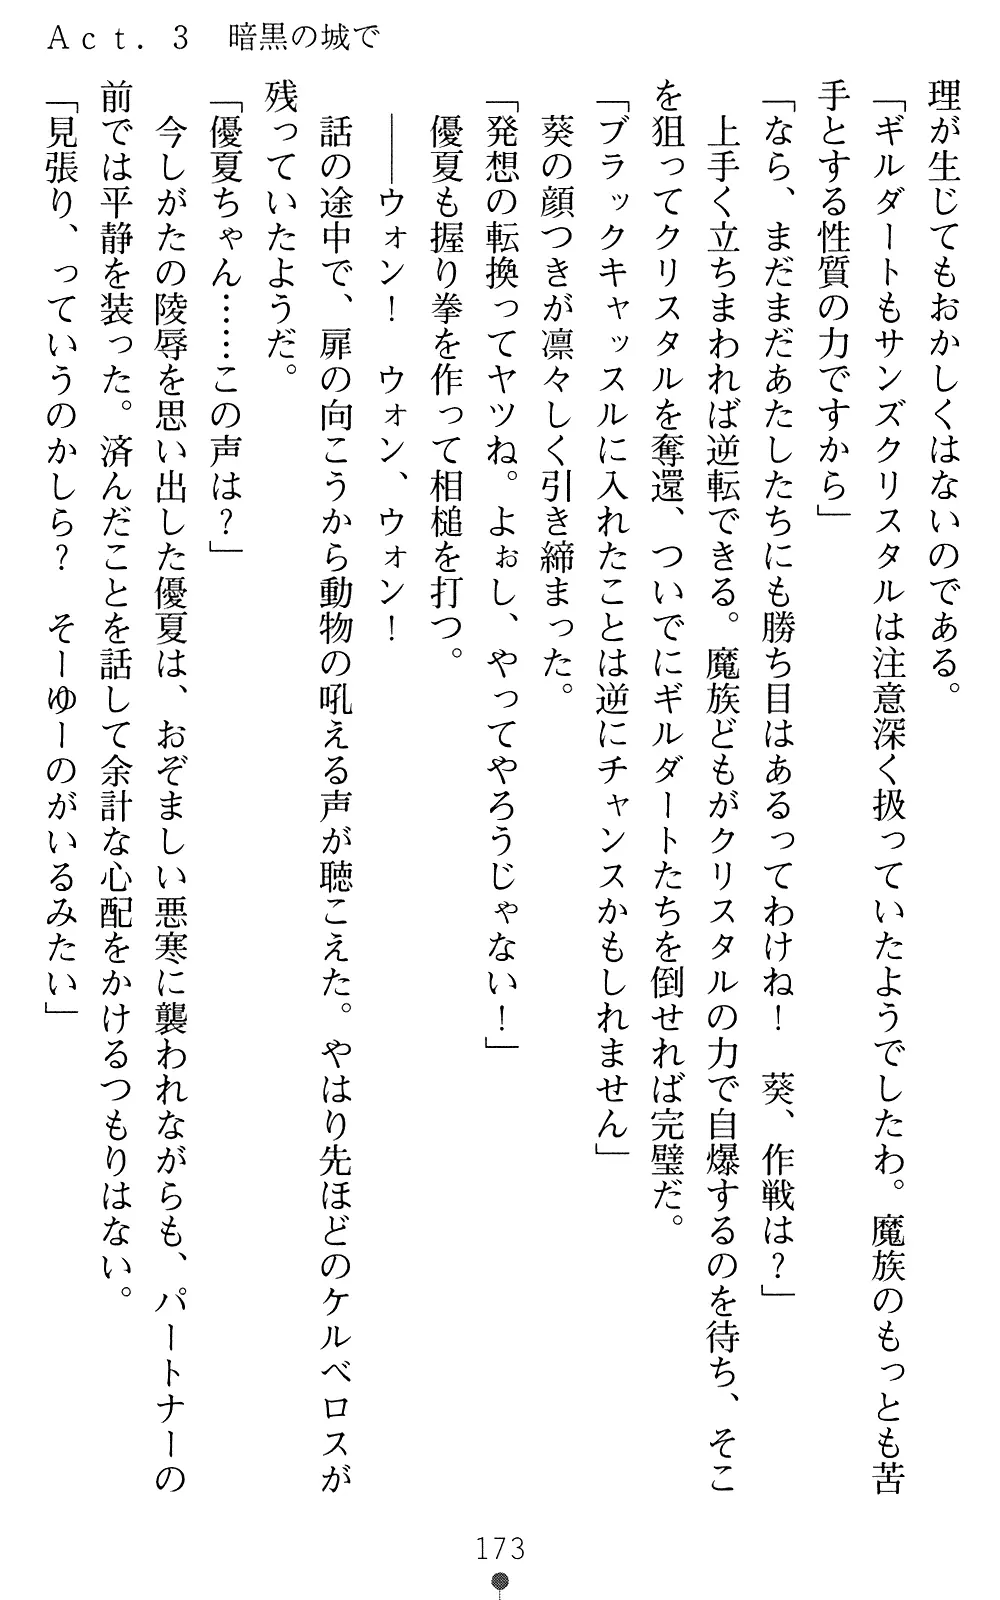 Act. 3　暗黒の城で
理が生じてもおかしくはないのである。
「ギルダートもサンズクリスタルは注意深く扱っていたようでしたわ。魔族のもっとも苦
手とする性質の力ですから」
「なら、まだまだあたしたちにも勝ち目はあるってわけね！　葵、作戦は？」
　上手く立ちまわれば逆転できる。魔族どもがクリスタルの力で自爆するのを待ち、そこ
を狙ってクリスタルを奪還、ついでにギルダートたちを倒せれば完璧だ。
「ブラックキャッスルに入れたことは逆にチャンスかもしれません」
　葵の顔つきが凛々しく引き締まった。
「発想の転換ってヤツね。よぉし、やってやろうじゃない！」
　優夏も握り拳を作って相槌を打つ。
　――ウォン！　ウォン、ウォン！
　話の途中で、扉の向こうから動物の吼える声が聴こえた。やはり先ほどのケルベロスが
残っていたようだ。
「優夏ちゃん……この声は？」
　今しがたの陵辱を思い出した優夏は、おぞましい悪寒に襲われながらも、パートナーの
前では平静を装った。済んだことを話して余計な心配をかけるつもりはない。
「見張り、っていうのかしら？　そーゆーのがいるみたい」
173